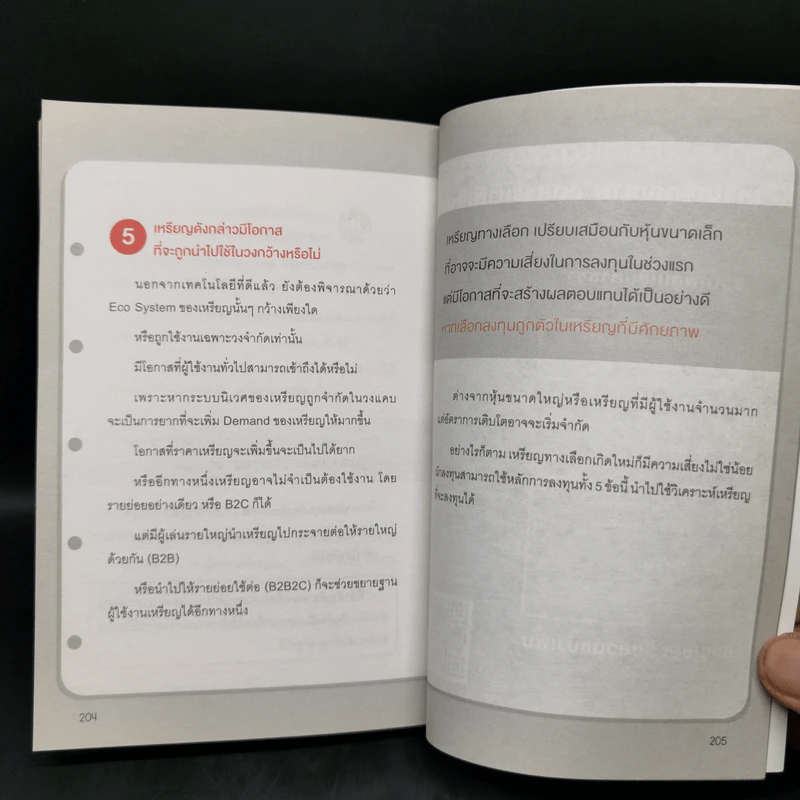 5
เหรียญดังกล่าวมีโอกาส
ที่จะถูกนำไปใช้ในวงกว้างหรือไม่
นอกจากเทคโนโลยีที่ดีแล้ว ยังต้องพิจารณาด้วยว่า
Eco System ของเหรียญนั้นๆ กว้างเพียงใด
หรือถูกใช้งานเฉพาะวงจำกัดเท่านั้น
มีโอกาสที่ผู้ใช้งานทั่วไปสามารถเข้าถึงได้หรือไม่
เพราะหากระบบนิเวศของเหรียญถูกจำกัดในวงแคบ
จะเป็นการยากที่จะเพิ่ม Demand ของเหรียญให้มากขึ้น
โอกาสที่ราคาเหรียญจะเพิ่มขึ้นจะเป็นไปได้ยาก
หรืออีกทางหนึ่งเหรียญอาจไม่จำเป็นต้องใช้งาน โดย
รายย่อยอย่างเดียว หรือ B2C ก็ได้
แต่มีผู้เล่นรายใหญ่นำเหรียญไปกระจายต่อให้รายใหญ่
ด้วยกัน (B2B)
หรือนำไปให้รายย่อยใช้ต่อ (B2B2C) ก็จะช่วยขยายฐาน
ผู้ใช้งานเหรียญได้อีกทางหนึ่ง
204
เหรียญทางเลือก เปรียบเสมือนกับหุ้นขนาดเล็ก
ที่อาจจะมีความเสี่ยงในการลงทุนในช่วงแรก
แต่มีโอกาสที่จะสร้างผลตอบแทนได้เป็นอย่างดี
หากเลือกลงทุนถูกตัวในเหรียญที่มีศักยภาพ
ต่างจากหุ้นขนาดใหญ่หรือเหรียญที่มีผู้ใช้งานจำนวนมาก
แต่อัตราการเติบโตอาจจะเริ่มจำกัด
อย่างไรก็ตาม เหรียญทางเลือกเกิดใหม่ก็มีความเสี่ยงไม่ใช่น้อย
นักลงทุนสามารถใช้หลักการลงทุนทั้ง 5 ข้อนี้ นำไปใช้วิเคราะห์เหรียญ
ที่จะลงทุนได้
205